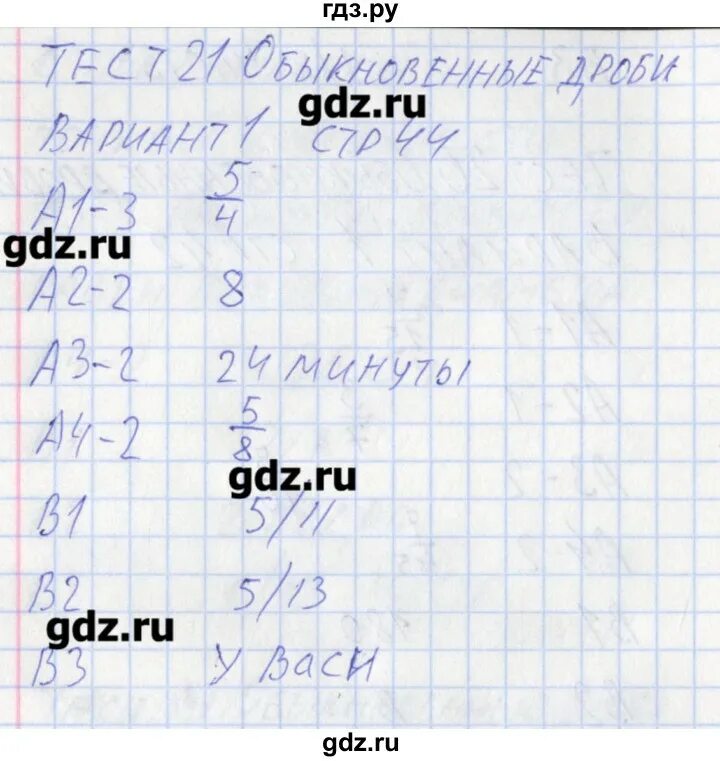 гдз.ру
ТЕСТ 21 Обыкновенные дроби
gdz.ru
Вариант 1 стр 44
А1-3 5/4
gdz.ru
А2-2 8
А3-2 24 минуты
А4-2 5/8
gdz.ru
В1 5/11
В2 5/13
gdz.ru
В3 У Васи
gdz.ru